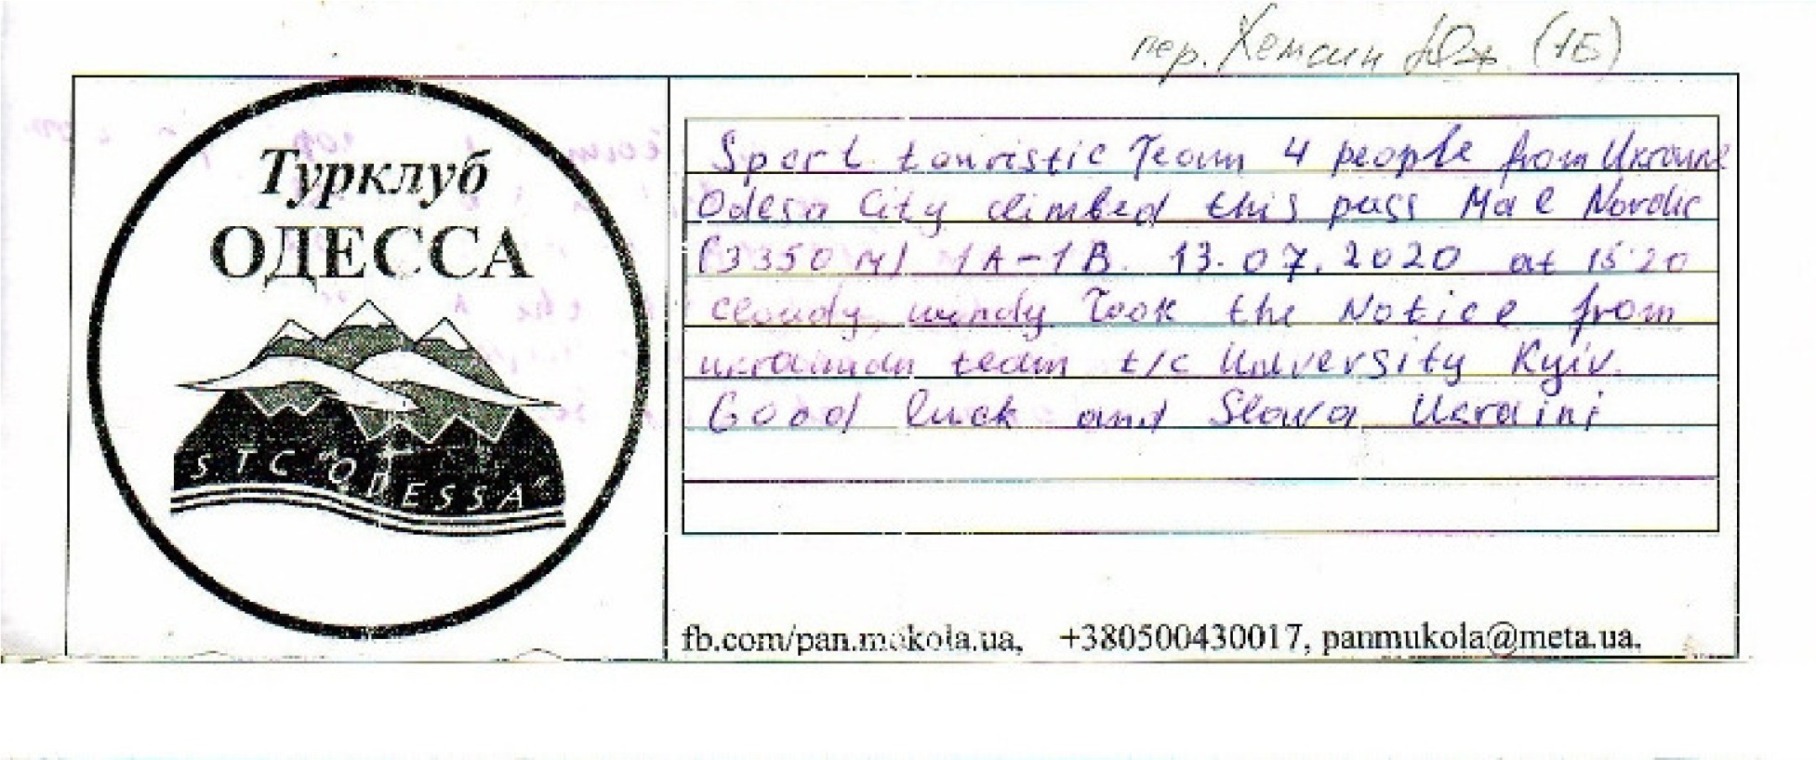 пер. Хемсин Юж. (1Б)
Турклуб
ОДЕССА
STC "ODESSA"
Sport touristic Team 4 people from Ukraine
Odesa City climbed this pass Mal Nordic
(3350 м) 1A-1B. 13.07.2020 at 15:20
cloudy, windy Took the Notice from
ukrainian team t/c University Kyiv.
Good luck and Slava Ukraini
fb.com/pan.mukola.ua, +380500430017, panmukola@meta.ua.